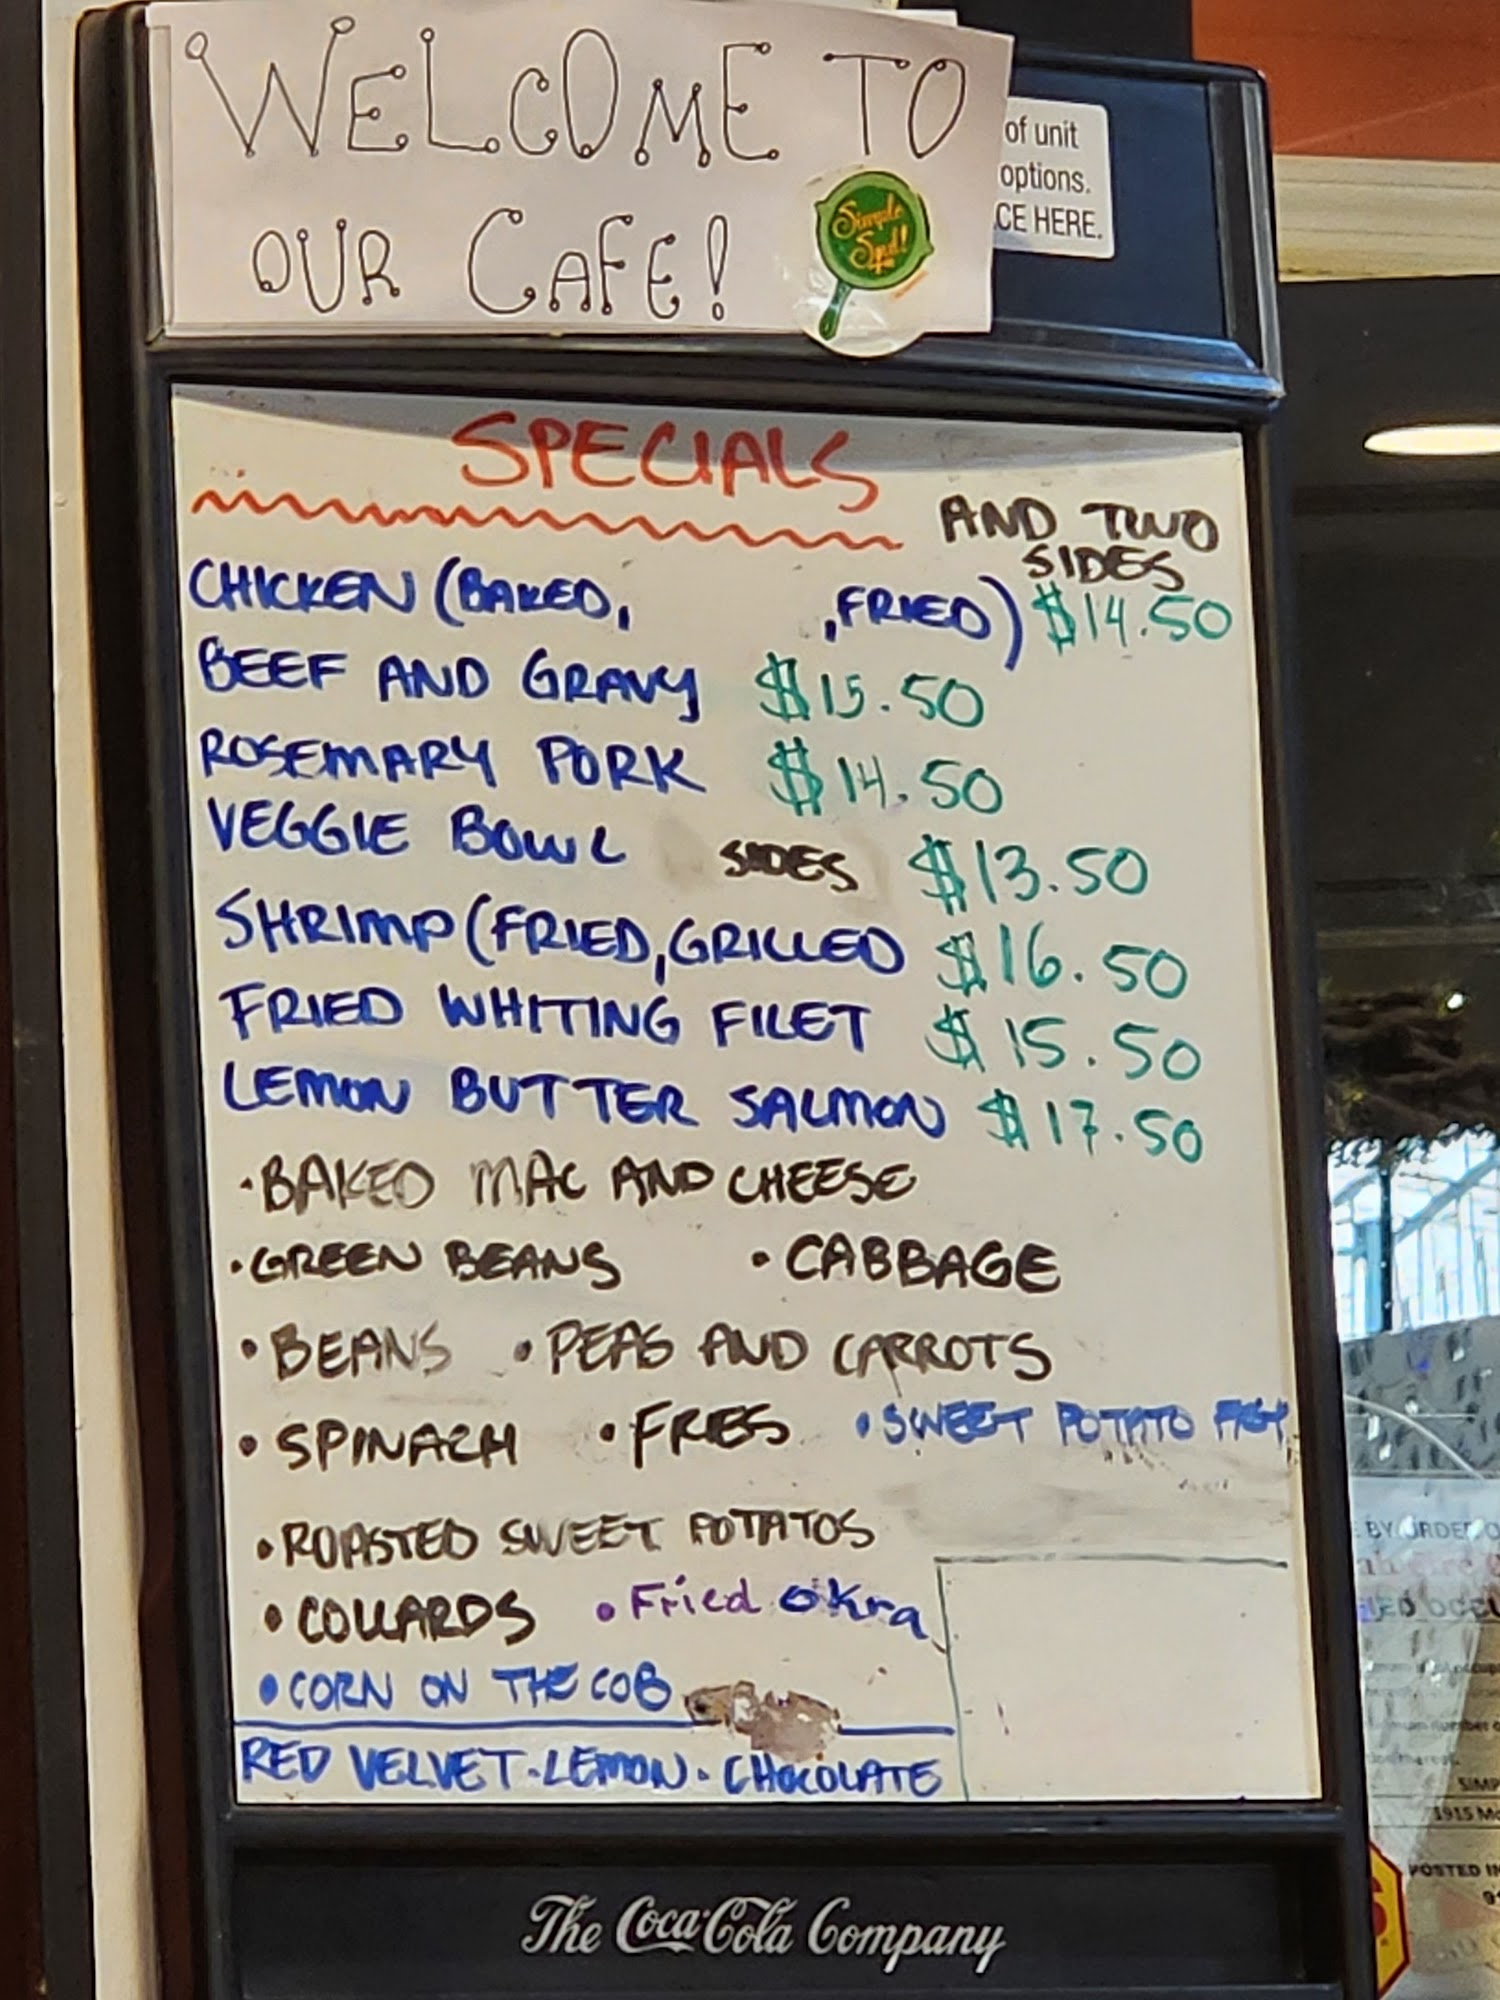 WELCOME TO
OUR CAFE!
Simple
Spud!
of unit
options.
CE HERE.
SPECIALS
AND TWO
SIDES
CHICKEN (BAKED, ,FRIED) $14.50
BEEF AND GRAVY $15.50
ROSEMARY PORK $14.50
VEGGIE BOWL SIDES $13.50
SHRIMP (FRIED, GRILLED $16.50
FRIED WHITING FILET $15.50
LEMON BUTTER SALMON $17.50
• BAKED MAC AND CHEESE
• GREEN BEANS • CABBAGE
• BEANS • PEAS AND CARROTS
• SPINACH • FRIES • SWEET POTATO
• ROASTED SWEET POTATOS
• COLLARDS • Fried okra
• CORN ON THE COB
RED VELVET • LEMON • CHOCOLATE
The Coca-Cola Company
BY ORDER O
SIMP
1915 Mo
POSTED IN